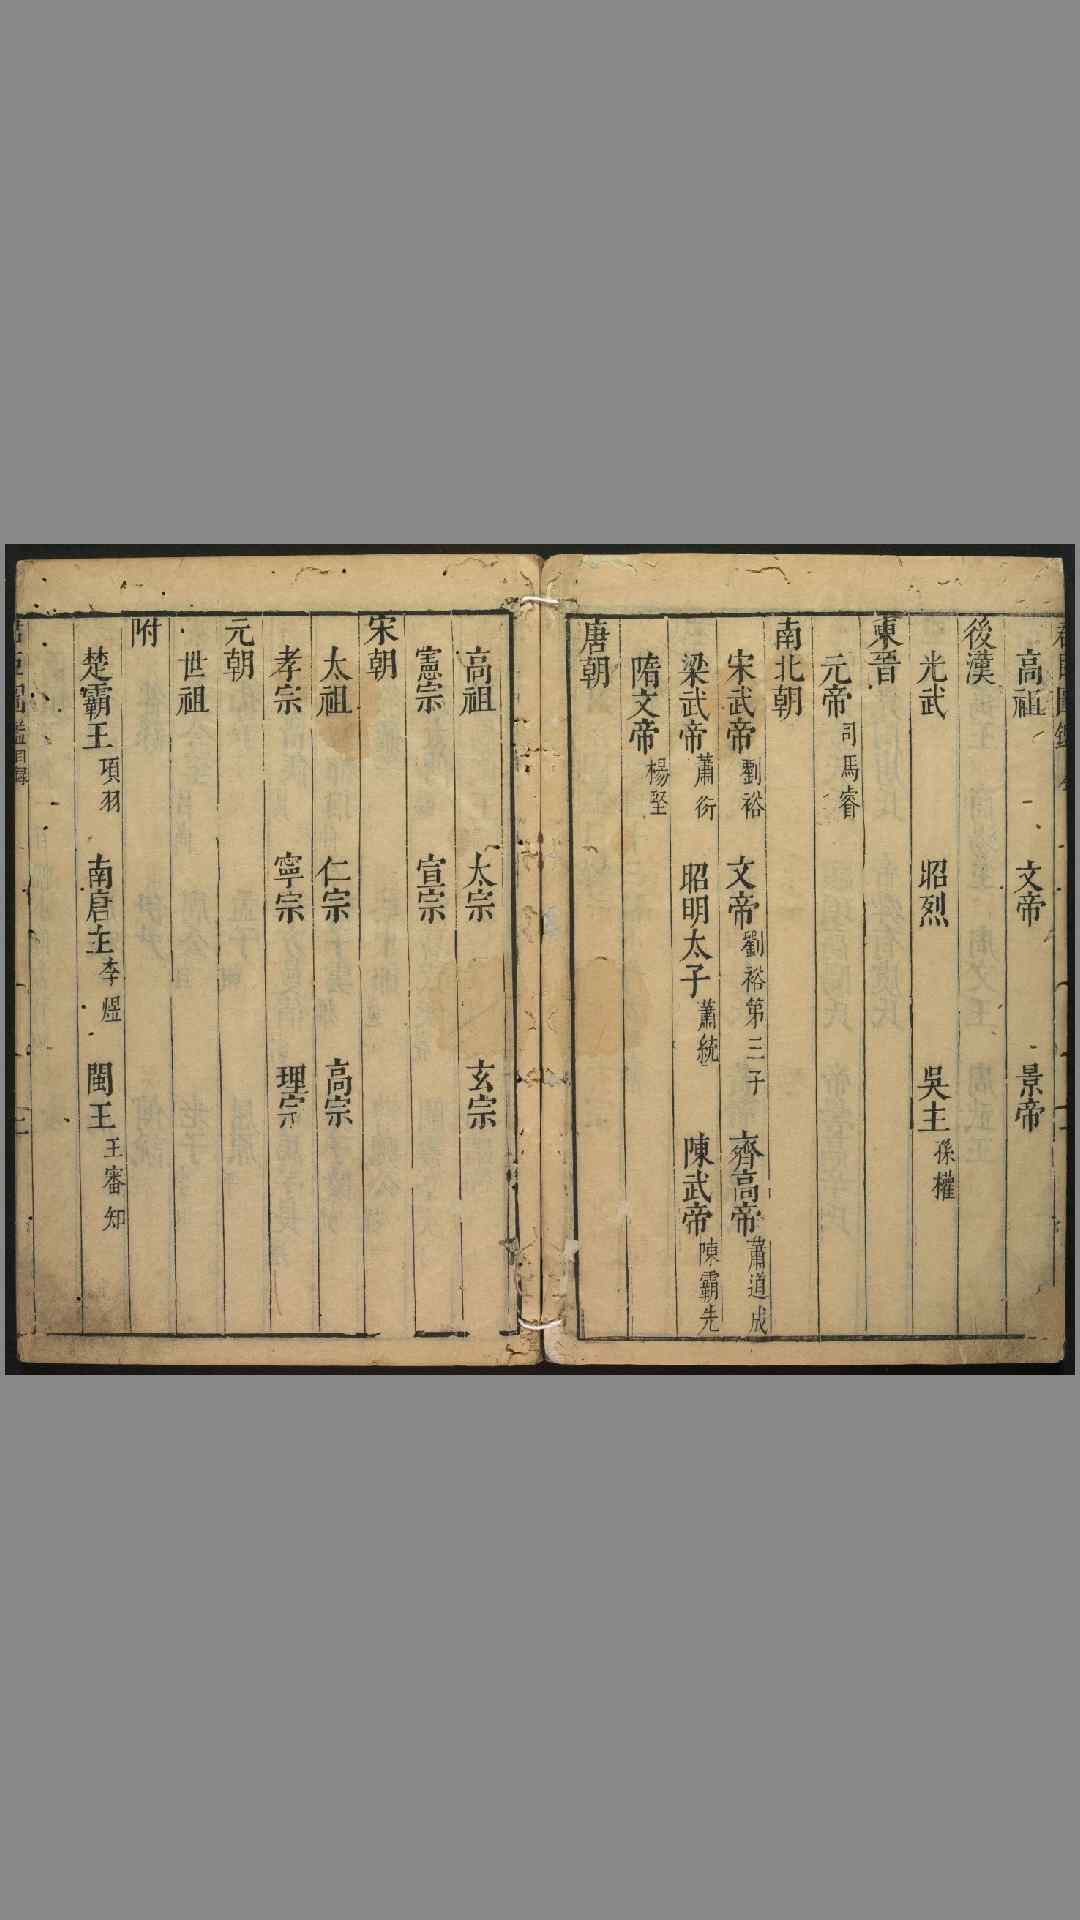 高祖 文帝 景帝
後漢
光武 昭烈 吳主孫權
東晉
元帝司馬睿
南北朝
宋武帝劉裕 文帝劉裕第三子 齊高帝蕭道成
梁武帝蕭衍 昭明太子蕭統 陳武帝陳霸先
隋文帝楊堅
唐朝
高祖 太宗 玄宗
憲宗 宣宗
宋朝
太祖 仁宗 高宗
孝宗 寧宗 理宗
元朝
世祖
附
楚霸王項羽 南唐主李煜 閩王王審知